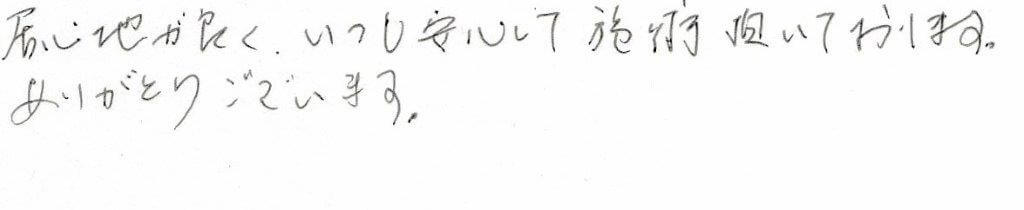 居心地が良く、いつも安心して施術頂いております。
ありがとうございます。